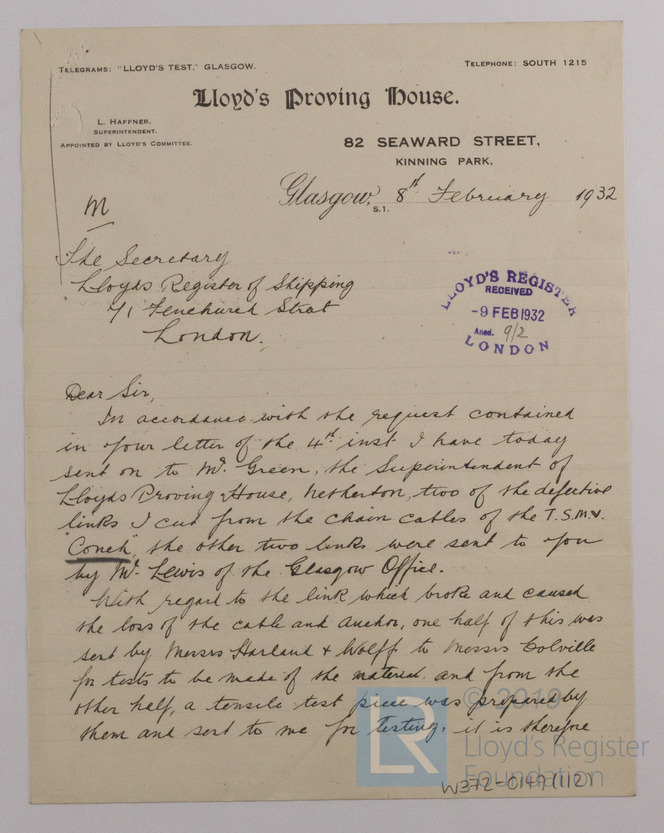 TELEGRAMS: "LLOYD'S TEST," GLASGOW.
TELEPHONE: SOUTH 1215
Lloyd's Proving House.
L. HAFFNER,
SUPERINTENDENT.
APPOINTED BY LLOYD'S COMMITTEE.
82 SEAWARD STREET,
KINNING PARK,
Glasgow, S.1. 8th February 1932
M
The Secretary
Lloyds Register of Shipping
71 Fenchurch Street
London.
LLOYD'S REGISTER
RECEIVED
-9 FEB 1932
Ansd. 9/2
LONDON
Dear Sir,
In accordance with the request contained
in your letter of the 4th inst I have today
sent on to Mr. Green, the Superintendent of
Lloyds Proving House, Netherton, two of the defective
links I cut from the chain cables of the T.S.M.V.
"Conch", the other two links were sent to you
by Mr. Lewis of the Glasgow Office.
With regard to the link which broke and caused
the loss of the cable and anchor, one half of this was
sent by Messrs Harland & Wolff to Messrs Colville
for tests to be made of the material, and from the
other half, a tensile test piece was prepared by
them and sent to me for testing, it is therefore
LR
© 2019
Lloyd's Register
Foundation
W372-C149(1/2)